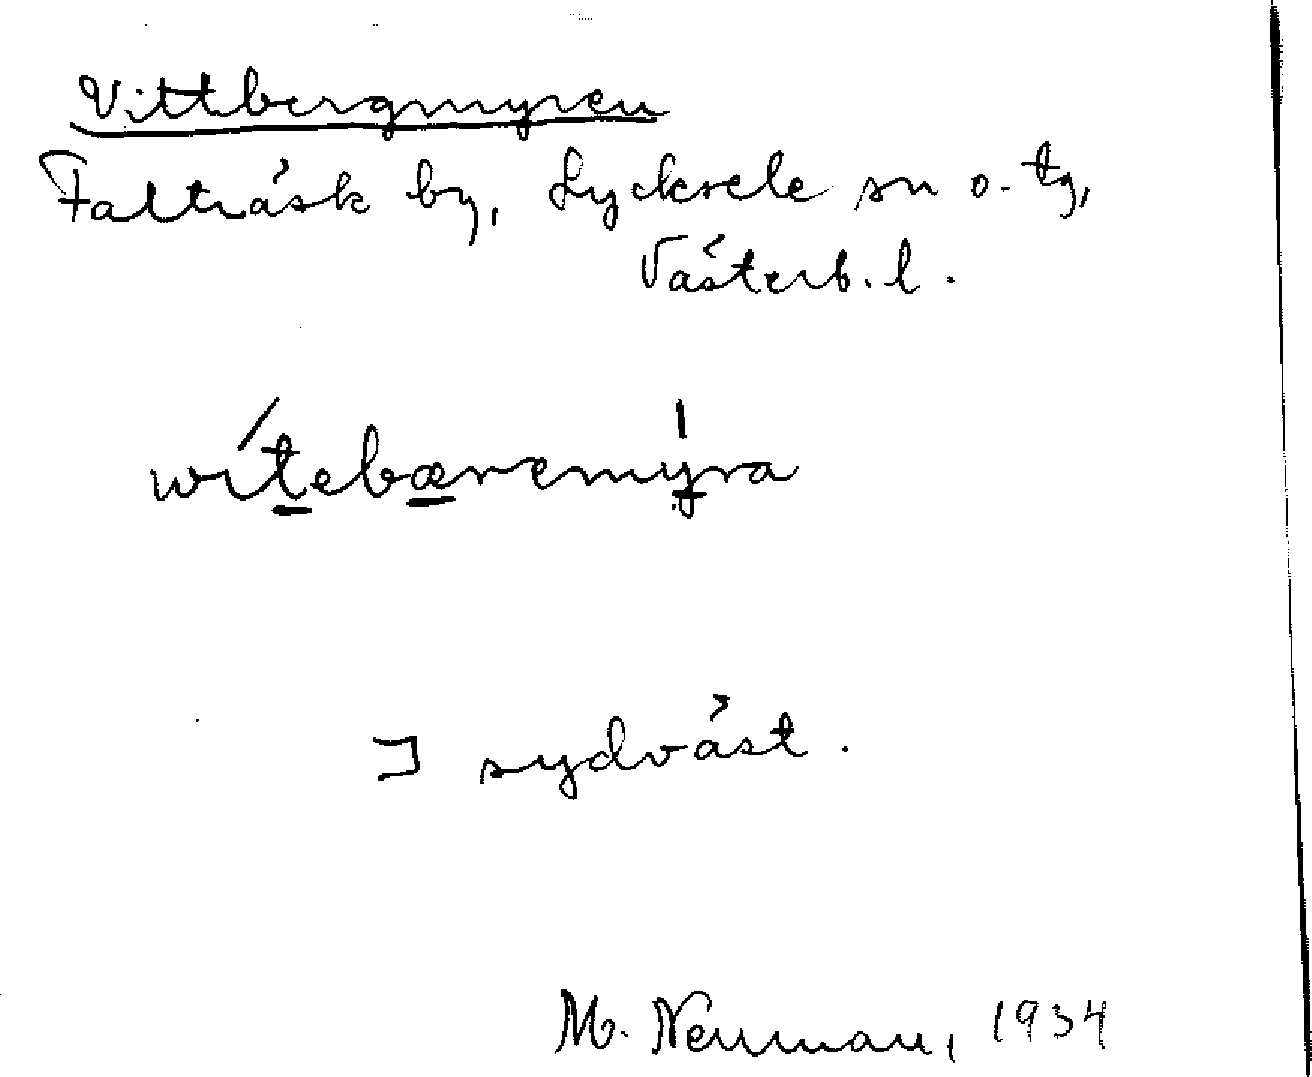 Vittbergmyren
Falträsk by, Lycksele sn o. tg,
Västerb. l.
witebæremyra
⊐ sydväst.
M. Neuman, 1934